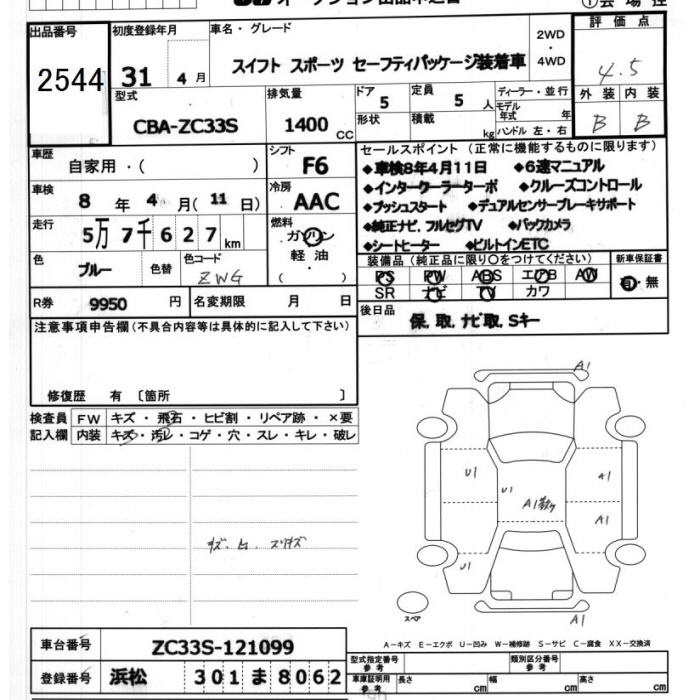 出品番号
2544
初度登録年月
31 4月
車名・グレード
スイフト スポーツ セーフティパッケージ装着車
2WD
・
4WD
評価点
4.5
外装 内装
B B
型式
CBA-ZC33S
排気量
1400 CC
ドア
5
定員
5 人
形状
積載
kg
ディーラー・並行
モデル年式 年
ハンドル 左・右
車歴
自家用・( )
シフト
F6
車検
8年 4月(11日)
冷房
AAC
走行
5万7千627km
燃料
ガソリン
軽油
( )
色
ブルー
色替
色コード
ZWG
R券
9950 円
名変期限 月 日
セールスポイント(正常に機能するものに限ります)
◆車検8年4月11日 ◆6速マニュアル
◆インタークーラーターボ ◆クルーズコントロール
◆プッシュスタート ◆デュアルセンサーブレーキサポート
◆純正ナビ,フルセグTV ◆バックカメラ
◆シートヒーター ◆ビルトインETC
装備品(純正品に限り○をつけてください)
PS PW ABS エアB AW
SR ナビ TV カワ
新車保証書
有・無
後日品
保,取,ナビ取,Sキー
注意事項申告欄(不具合内容等は具体的に記入して下さい)
修復歴 有〔箇所 〕
検査員
記入欄
FW キズ・飛石・ヒビ割・リペア跡・×要
内装 キズ・汚レ・コゲ・穴・スレ・キレ・破レ
A1
U1
U1
A1
A1
A1
U1
スペア
A1
A-キズ E-エクボ U-凹み W-補修跡 S-サビ C-腐食 XX-交換済
車台番号
ZC33S-121099
登録番号
浜松 301 ま 8062
型式指定番号
参考
類別区分番号
参考
車庫証明用
参考
長さ cm
幅 cm
高さ cm